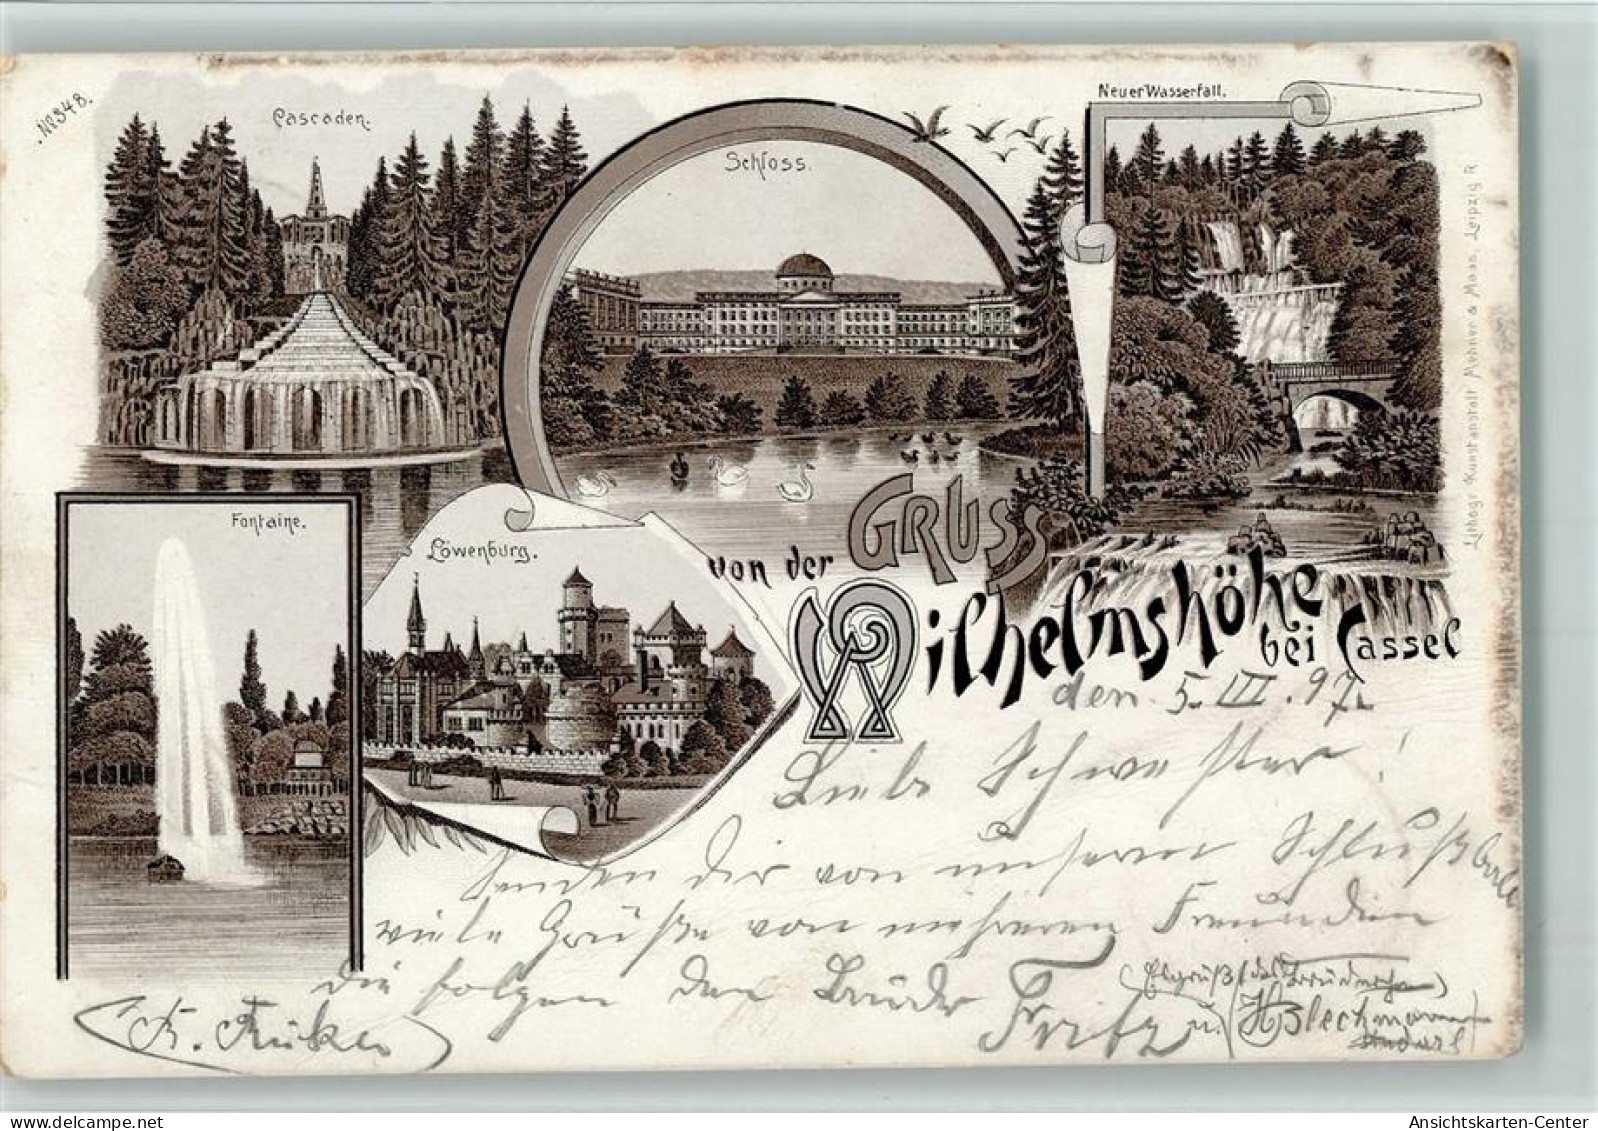 No 348.
Cascaden.
Schloss.
Neuer Wasserfall.
Lithogr. Kunstanstalt Mehner & Maas, Leipzig R
Fontaine.
Löwenburg.
GRUSS
von der
Wilhelmshöhe
bei Cassel
den 5. III. 97.
Liebe Schwester!
Senden dir von unserer
viele Grüße von mehreren Freunden
die folgen dein Bruder Fritz u.